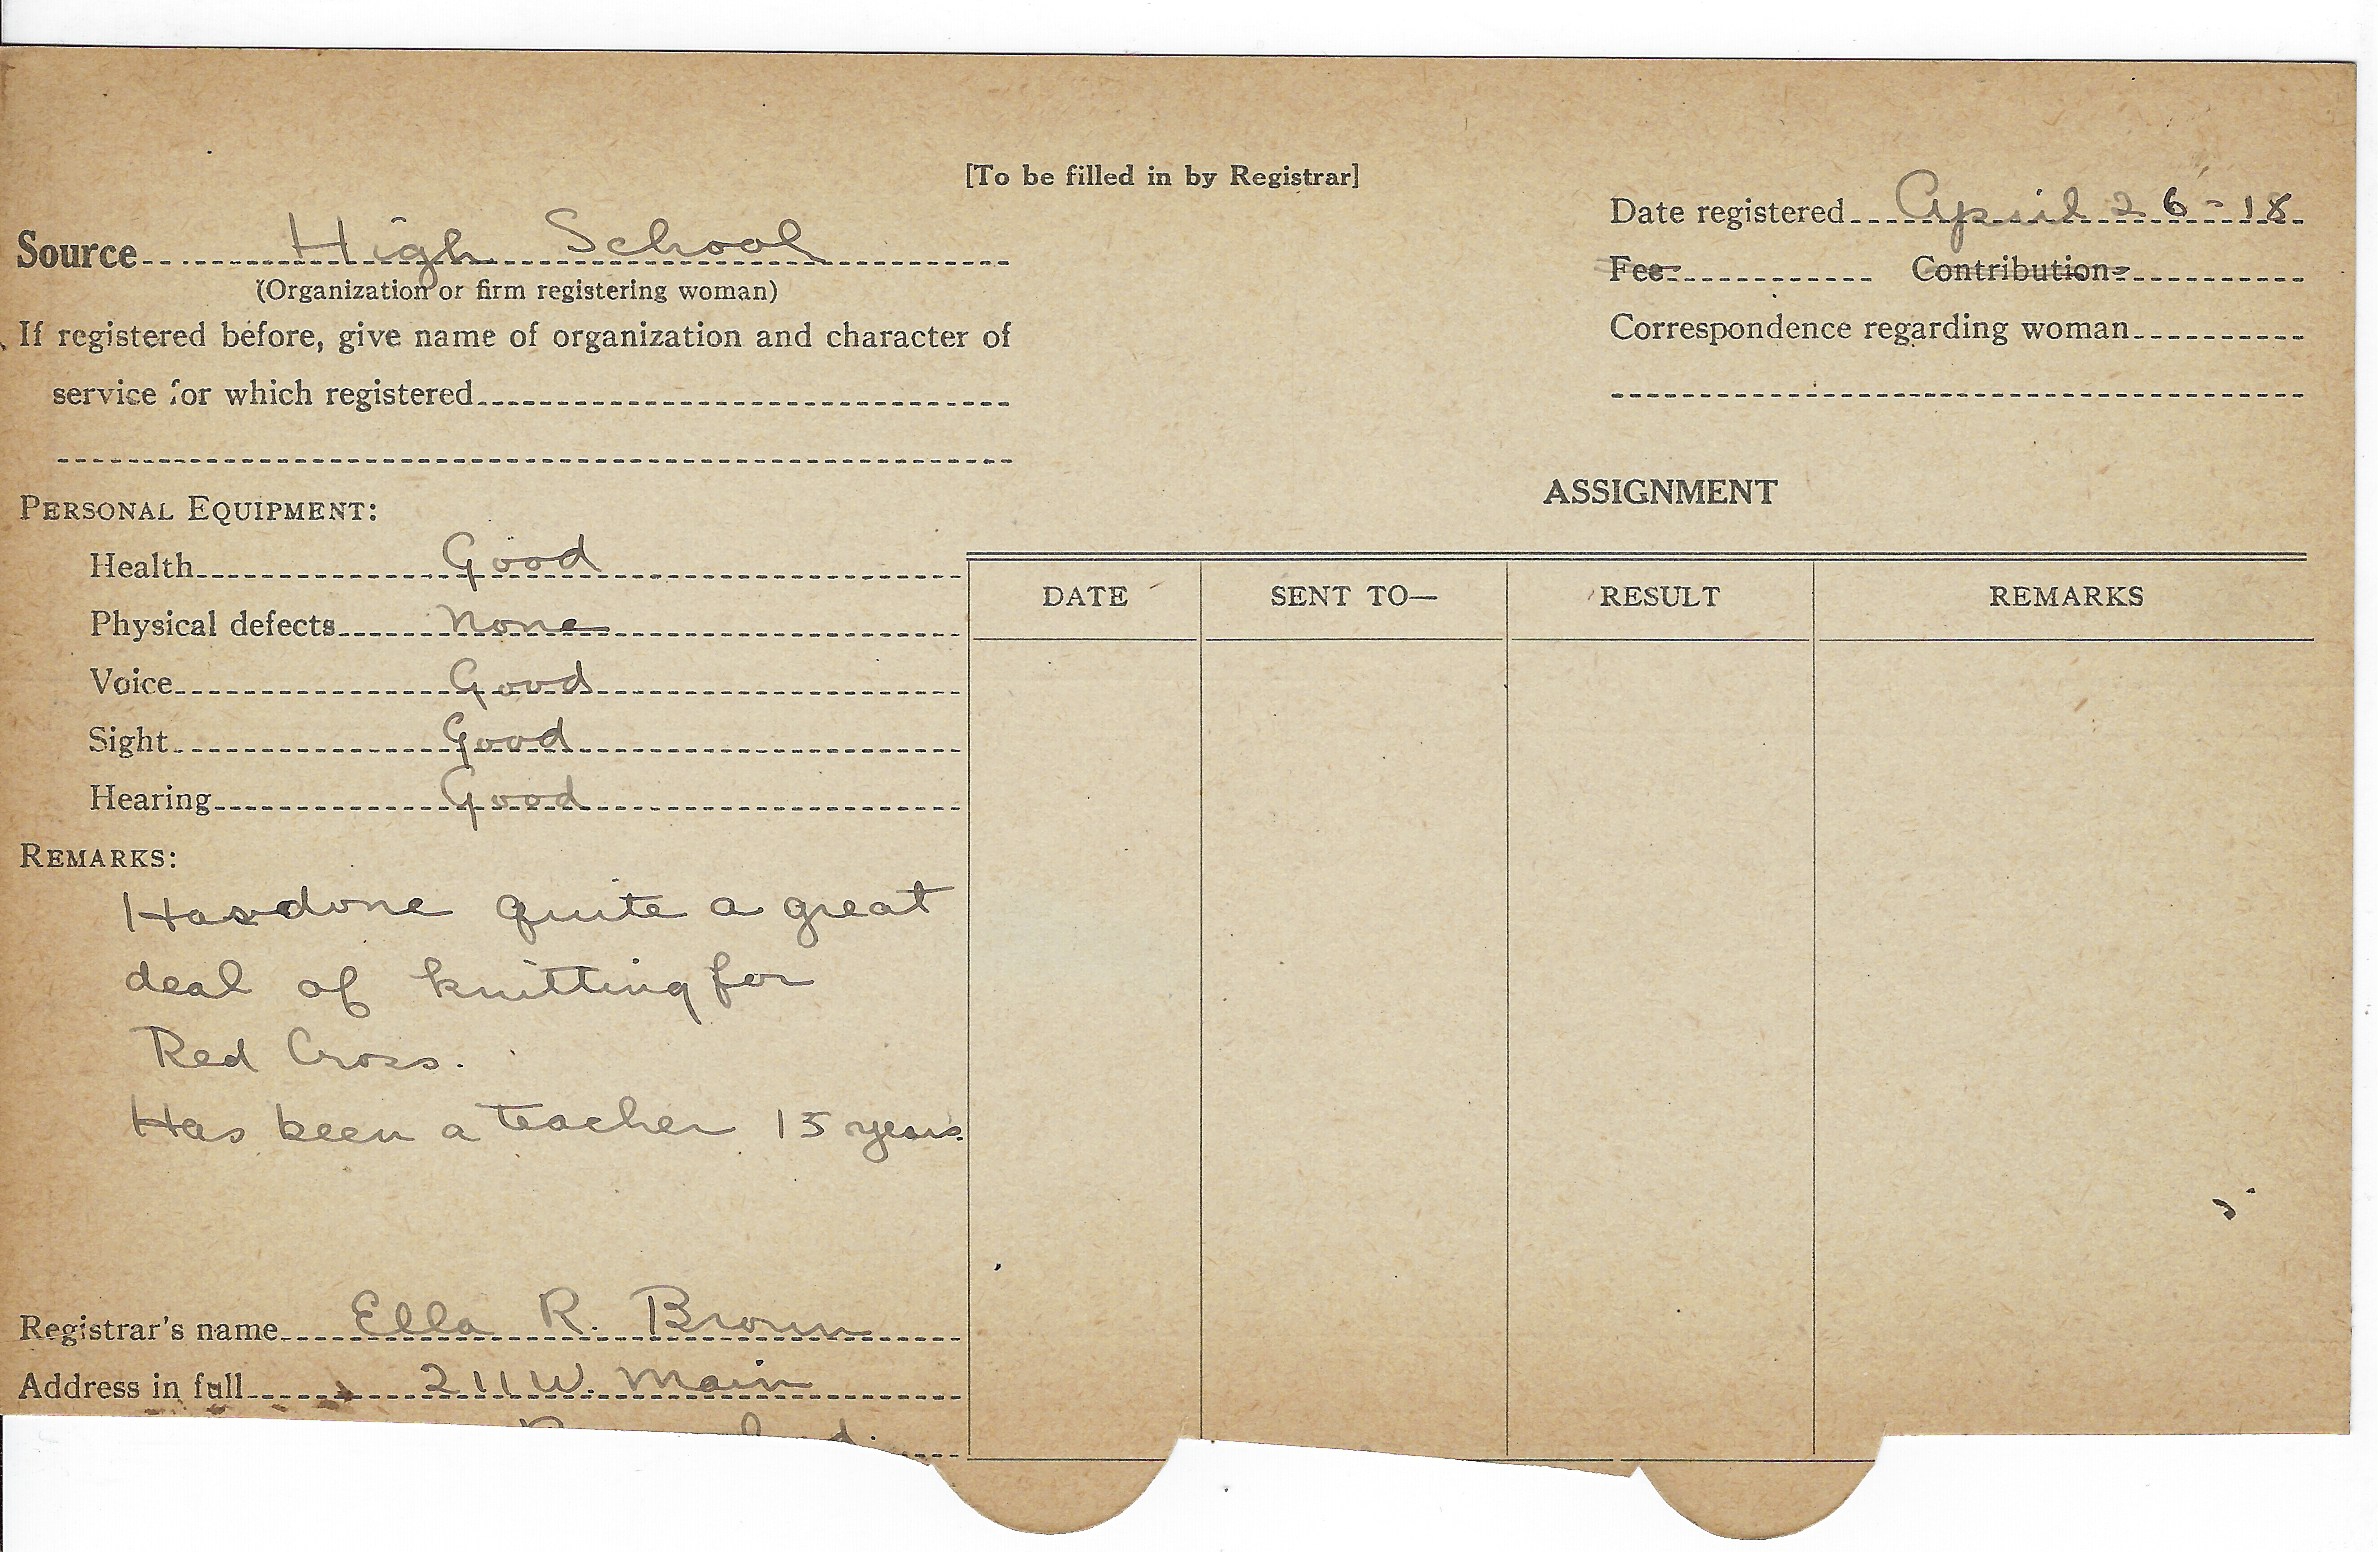 [To be filled in by Registrar]
Date registered April 26-18
Source High School
(Organization or firm registering woman)
Fee Contribution
If registered before, give name of organization and character of
Correspondence regarding woman
service for which registered
ASSIGNMENT
PERSONAL EQUIPMENT:
Health Good
DATE SENT TO— RESULT REMARKS
Physical defects none
Voice Good
Sight Good
Hearing Good
REMARKS:
Has done quite a great
deal of knitting for
Red Cross.
Has been a teacher 15 years.
Registrar's name Ella R. Brown
Address in full 211 W. Main